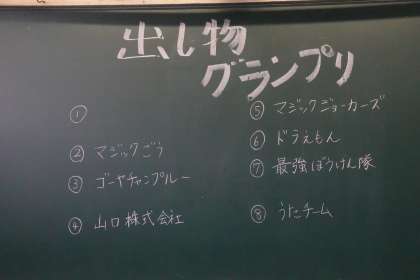 出し物
グランプリ
①
② マジックごう
③ ゴーヤチャンプルー
④ 山口株式会社
⑤ マジックジョーカーズ
⑥ ドラえもん
⑦ 最強ぼうけん隊
⑧ うたチーム